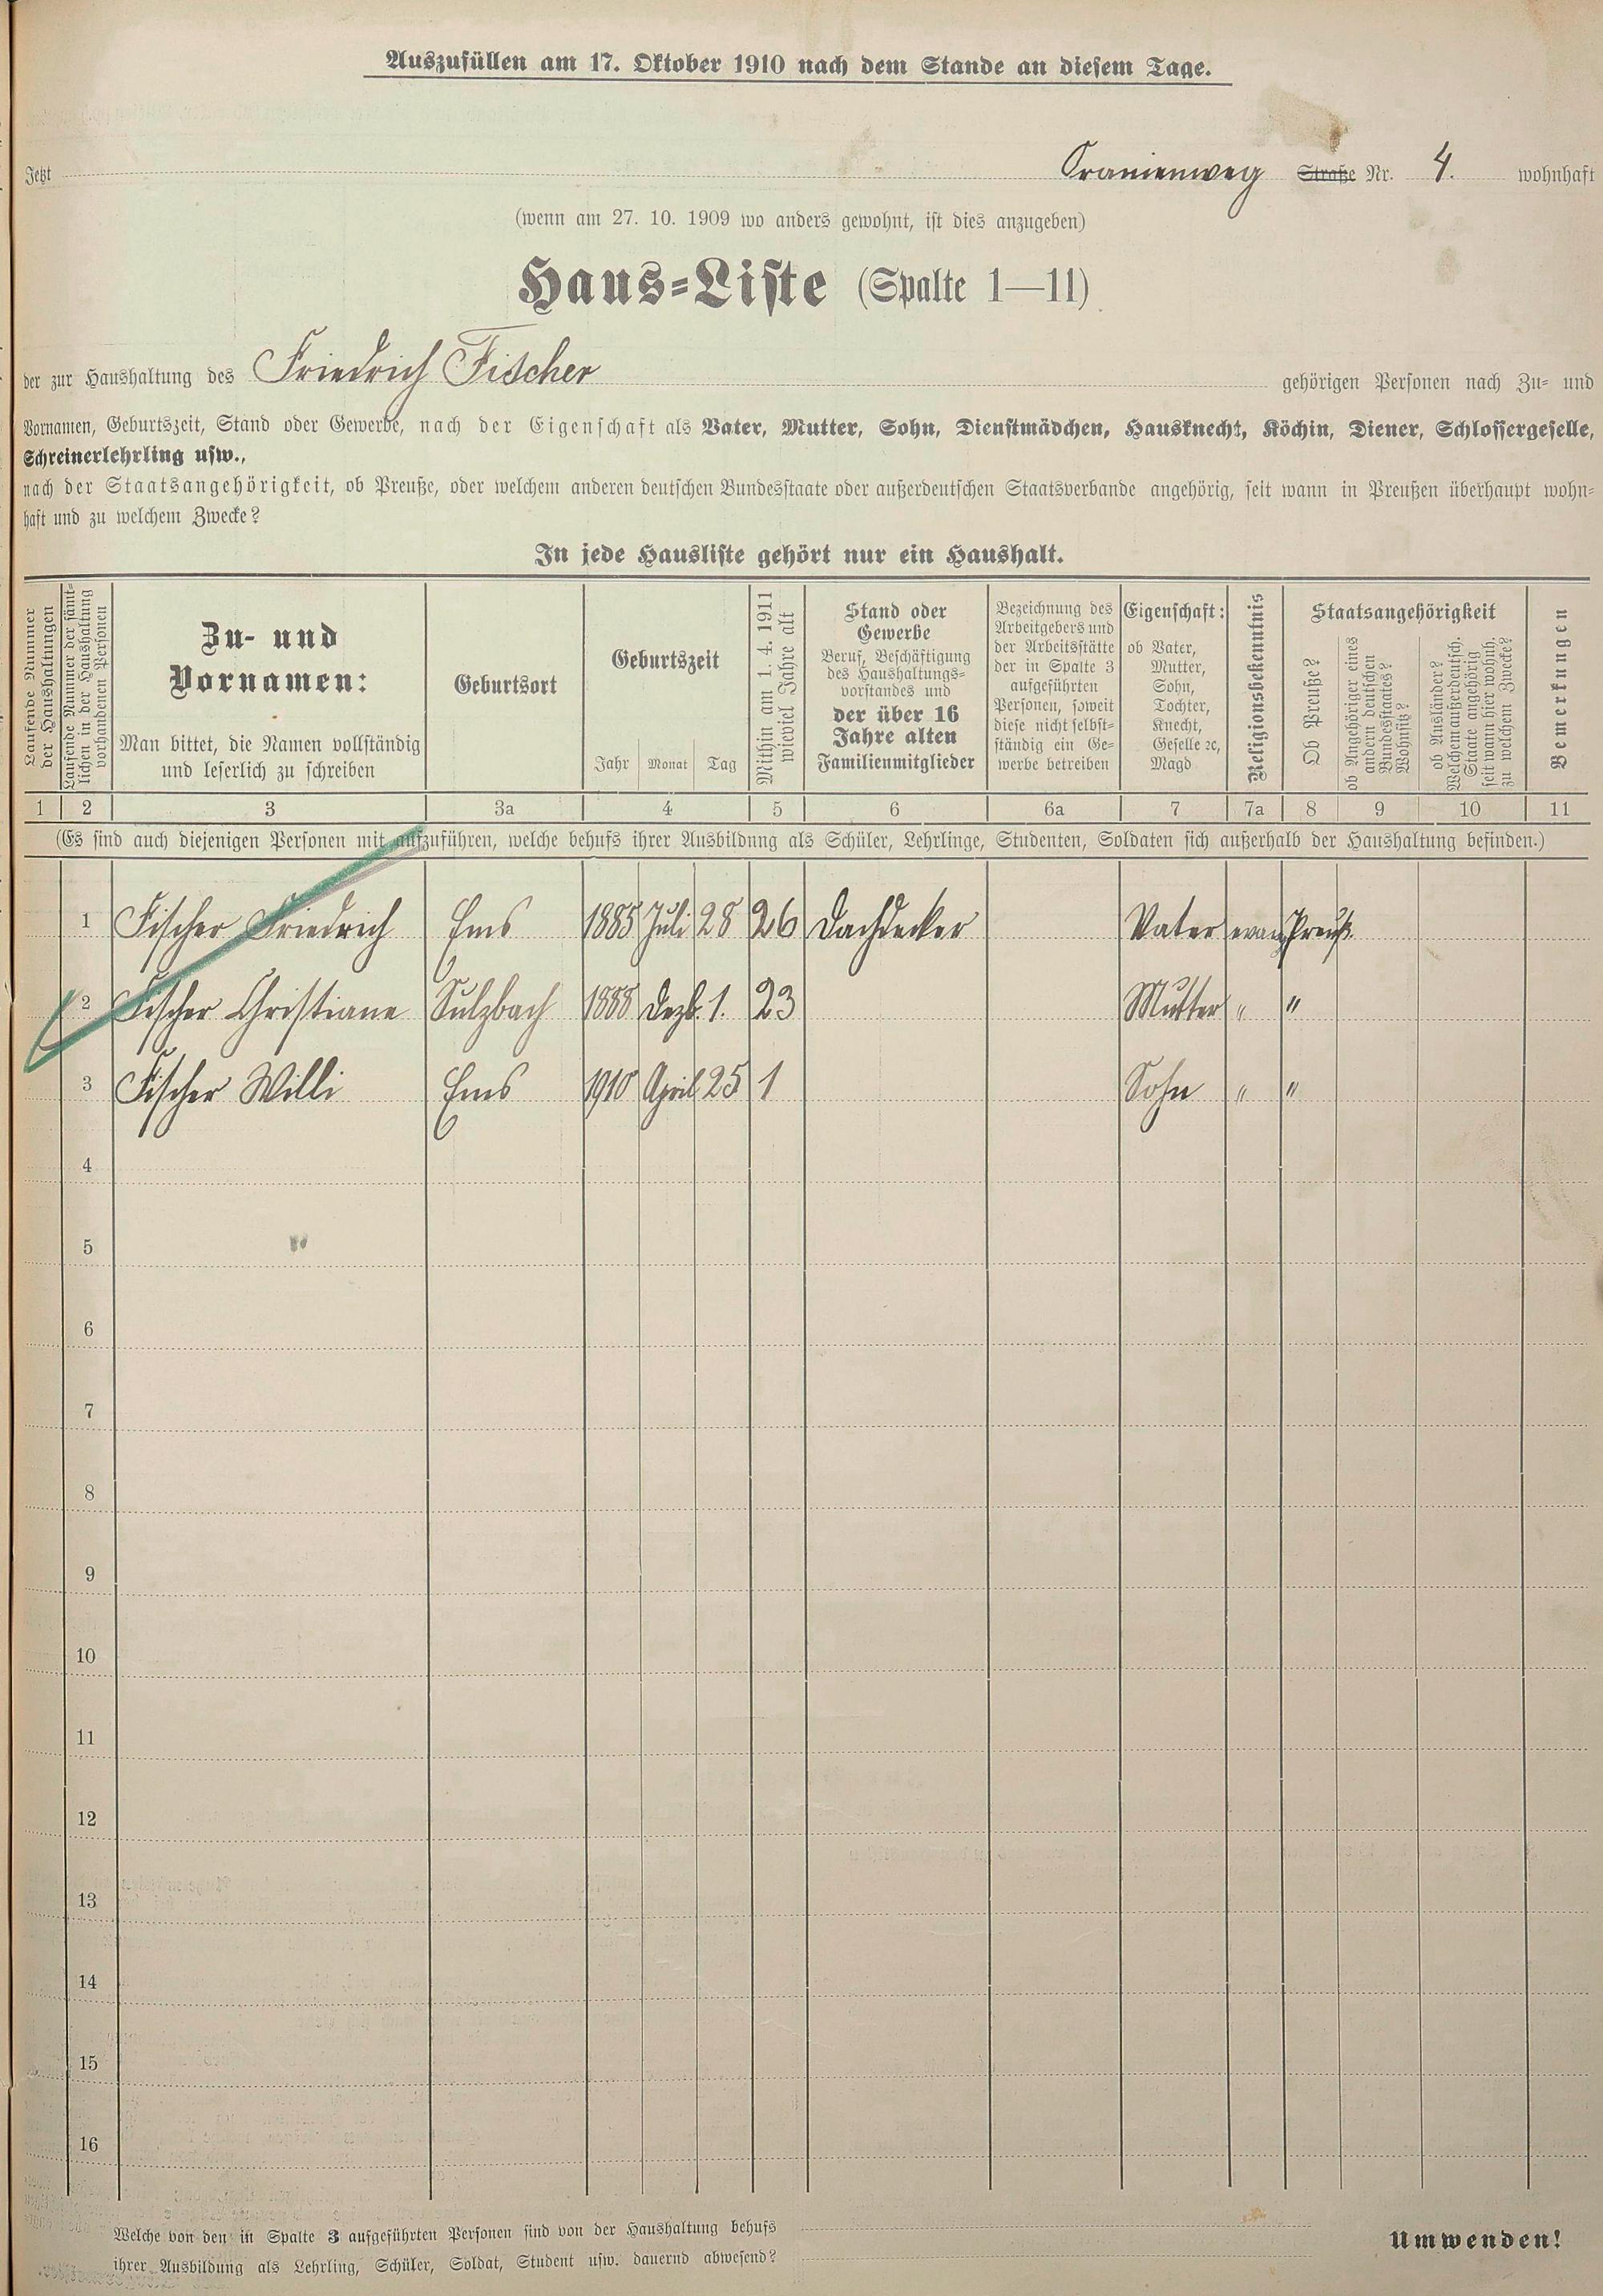 Auszufüllen am 17. Oktober 1910 nach dem Stande an diesem Tage.
Jetzt Oranienweg Straße Nr. 4. wohnhaft
(wenn am 27. 10. 1909 wo anders gewohnt, ist dies anzugeben)
Haus-Liste (Spalte 1—11)
der zur Haushaltung des Friedrich Fischer gehörigen Personen nach Zu- und
Vornamen, Geburtszeit, Stand oder Gewerbe, nach der Eigenschaft als Vater, Mutter, Sohn, Dienstmädchen, Hausknecht, Köchin, Diener, Schlossergeselle,
Schreinerlehrling usw.,
nach der Staatsangehörigkeit, ob Preuße, oder welchem anderen deutschen Bundesstaate oder außerdeutschen Staatsverbande angehörig, seit wann in Preußen überhaupt wohn-
haft und zu welchem Zwecke?
In jede Hausliste gehört nur ein Haushalt.
Laufende Nummer
der Haushaltungen
Laufende Nummer der sämt-
lichen in der Haushaltung
vorhandenen Personen
Zu- und
Vornamen:
Man bittet, die Namen vollständig
und leserlich zu schreiben
Geburtsort
Geburtszeit
Jahr Monat Tag
Mithin am 1. 4. 1911
wieviel Jahre alt
Stand oder
Gewerbe
Beruf, Beschäftigung
des Haushaltungs-
vorstandes und
der über 16
Jahre alten
Familienmitglieder
Bezeichnung des
Arbeitgebers und
der Arbeitsstätte
der in Spalte 3
aufgeführten
Personen, soweit
diese nicht selbst-
ständig ein Ge-
werbe betreiben
Eigenschaft:
ob Vater,
Mutter,
Sohn,
Tochter,
Knecht,
Geselle ꝛc,
Magd
Religionsbekenntnis
Staatsangehörigkeit
Ob Preuße?
ob Angehöriger eines
andern deutschen
Bundesstaates?
Wohnsitz?
ob Ausländer?
Welchem außerdeutsch.
Staate angehörig
seit wann hier wohnh.
zu welchem Zwecke?
Bemerkungen
1 2 3 3a 4 5 6 6a 7 7a 8 9 10 11
(Es sind auch diejenigen Personen mit aufzuführen, welche behufs ihrer Ausbildung als Schüler, Lehrlinge, Studenten, Soldaten sich außerhalb der Haushaltung befinden.)
1 Fischer Friedrich Ems 1885 Juli 28 26 Dachdecker Vater evang Preuß.
2 Fischer Christiane Sulzbach 1888 Dezb. 1. 23 Mutter " "
3 Fischer Willi Ems 1910 April 25 1 Sohn " "
4
5
6
7
8
9
10
11
12
13
14
15
16
Welche von den in Spalte 3 aufgeführten Personen sind von der Haushaltung behufs
ihrer Ausbildung als Lehrling, Schüler, Soldat, Student usw. dauernd abwesend?
Umwenden!